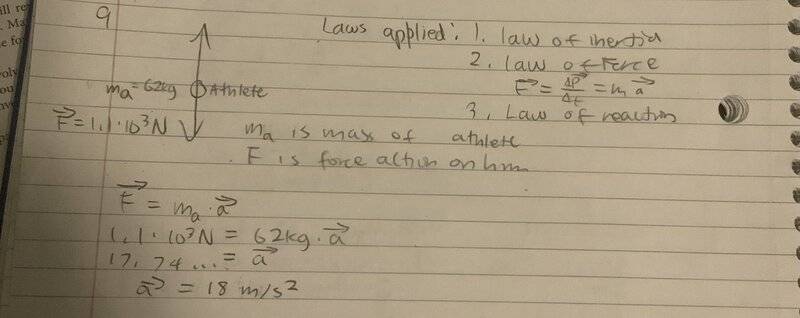 9
Laws applied: 1. law of inertia
2. law of Force
F⃗ = ΔP⃗/Δt = m a⃗
3. Law of reaction
mₐ=62kg Athlete
F⃗=1,1·10³N
mₐ is mass of athlete
F is force action on him
F⃗ = mₐ·a⃗
1,1·10³N = 62kg·a⃗
17,74...= a⃗
a⃗ = 18 m/s²